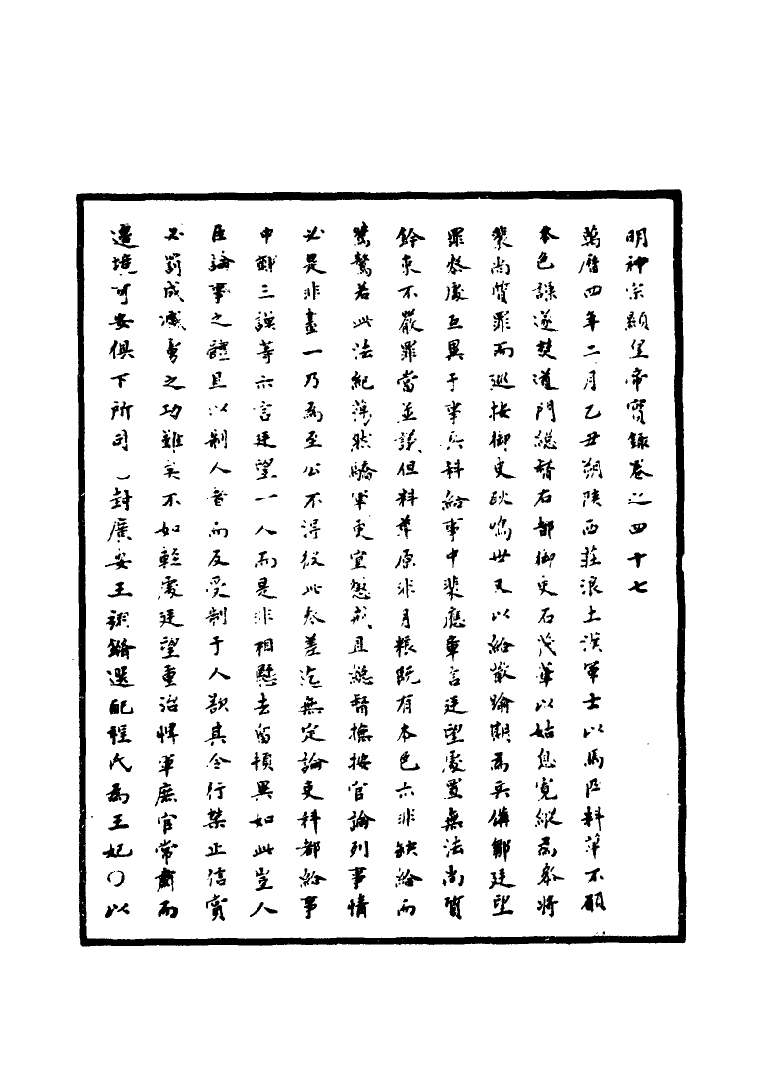 明神宗顯皇帝實錄卷之四十七
萬曆四年二月乙丑朔陝西莊浪土漢軍士以馬匹料草不願
本色譟逐焚道門總督右都御史石茂華以姑息寬縱為參將
裴尚質罪而巡按御史耿鳴世又以給散踰期為兵備鄒廷望
罪叅處互異于事兵科給事中裴應章言廷望處置無法尚質
鈐束不嚴罪當並議但料草原非月糧既有本色亦非缺給而
驁若此法紀蕩然驕軍更宜懲戒且總督撫按官論列事情
必是非畫一乃為至公不得彼此參差迄無定論吏科都給事
中鄭三謨等亦言廷望一人而是非相懸去留頓異如此豈人
臣論事之體且以制人者而反受制于人欲其令行禁止信賞
必罰成滅虜之功難矣不如輕處廷望重治悍軍庶官常肅而
邊境可安俱下所司○封廣安王選配程氏為王妃○以